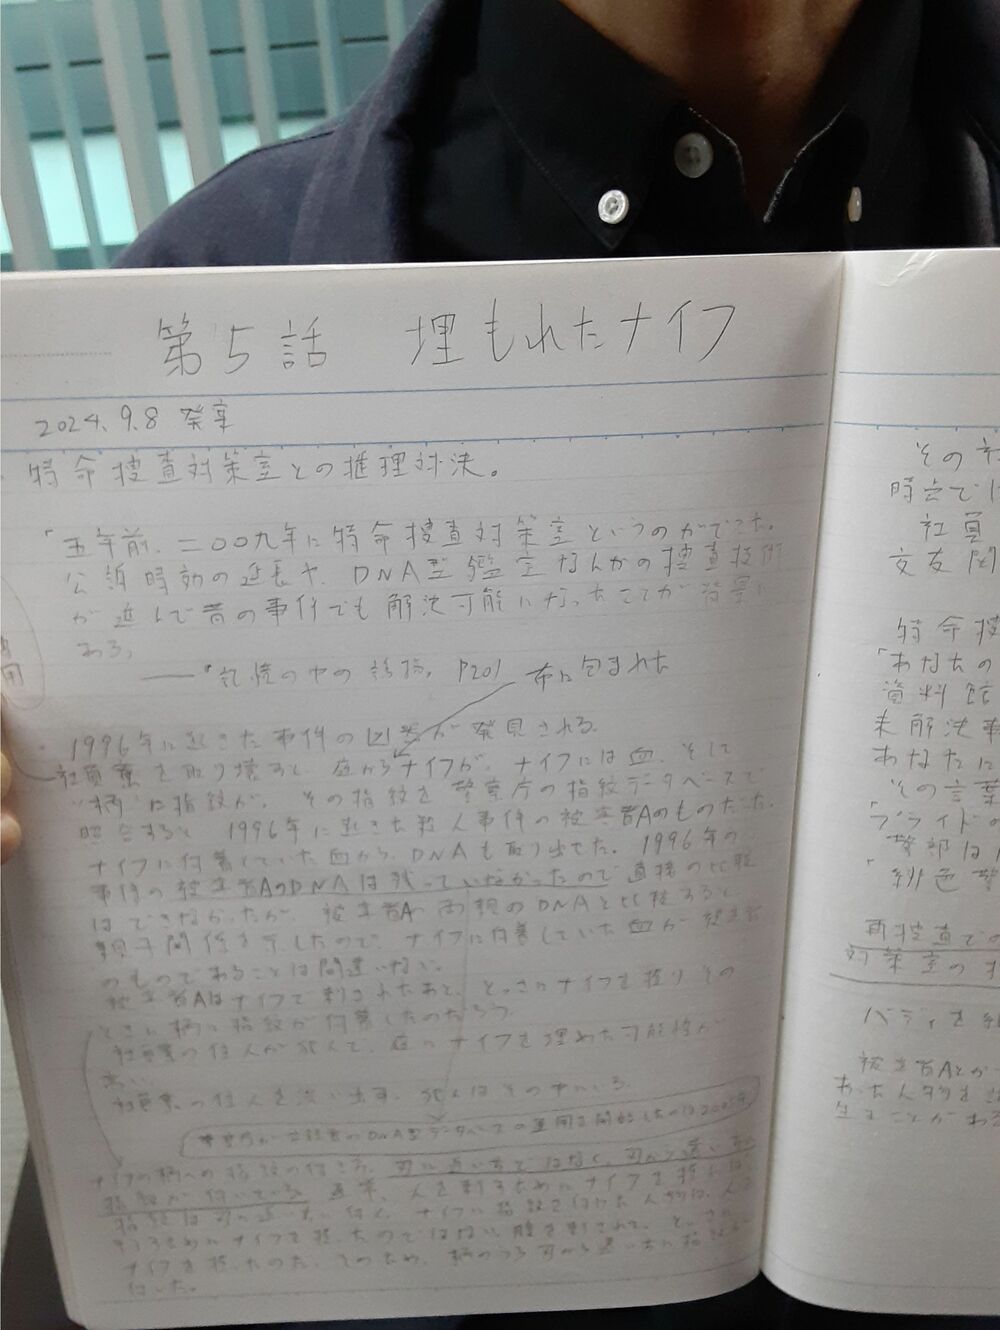 第5話 埋もれたナイフ
2024.9.8 癸亥
特命捜査対策室との推理対決。
「五年前、二〇〇九年に特命捜査対策室というのができた。
公訴時効の延長や、DNA型鑑定なんかの捜査技術
が進んで昔の事件でも解決可能になったことが背景に
ある」
──『記憶の中の誘拐』P201
布に包まれた
1996年に起きた事件の凶器が発見される。
社員寮を取り壊すと、庭からナイフが。ナイフには血、そして
"柄"に指紋が。その指紋を警察庁の指紋データベースで
照合すると1996年に起きた殺人事件の被害者Aのものだった。
ナイフに付着していた血から、DNAも取り出せた。1996年の
事件の被害者AのDNAは残っていなかったので直接の比較
はできなかったが、被害者Aの両親のDNAと比較すると、
親子関係を示したので、ナイフに付着していた血が被害者
のものであることは間違いない。
被害者Aはナイフで刺されたあと、とっさにナイフを握りその
ときに柄に指紋が付着したのだろう。
社員寮の住人が犯人で、庭にナイフを埋めた可能性が
高い。
社員寮の住人を洗い出す。犯人はその中にいる。
警察庁が DNA型データベースの運用を開始したのは200
ナイフの柄への指紋の付き方。刃に近い方ではなく、刃から遠い方に
指紋が付いている。通常、人を刺すためにナイフを握れば、
指紋は刃に近い方に付く。ナイフに指紋を付けた人物は、人を
ナイフを握ったのではない。腹を刺されて、とっさに
ナイフを握ったのだ。そのため、柄のうち刃から遠い方に指紋が
付いた。
その社
時点では
社員
交友関
特命捜
「あなたの
資料館
未解決事
あなたに
その言葉
「プライドの
警部は
「緋色警
再捜査での
対策室の
バディを
被害者Aとか
わった人物を
生きことがわ